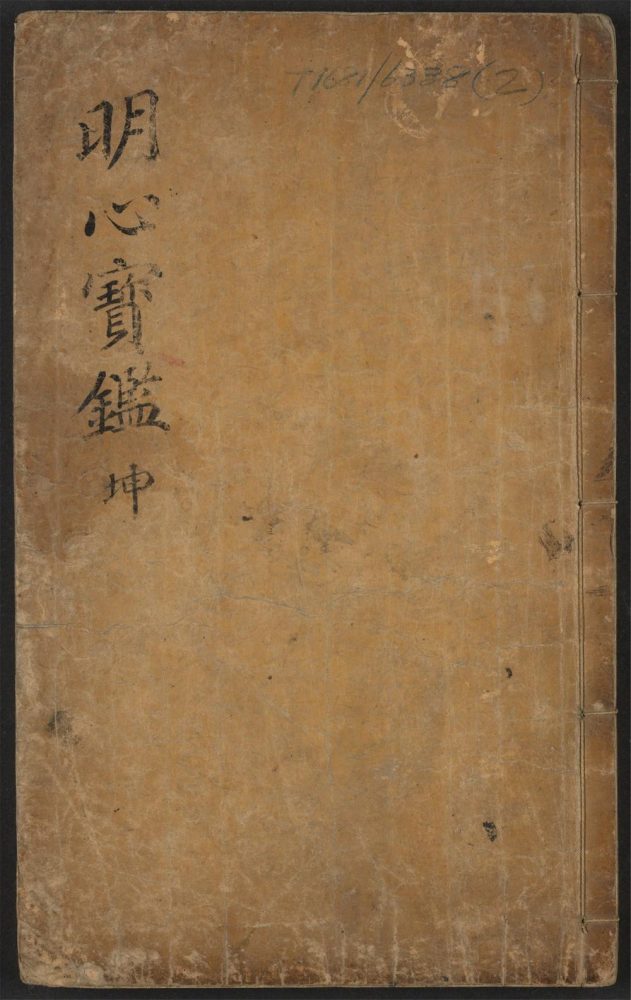 明心寶鑑 坤
T1681/6338(2)